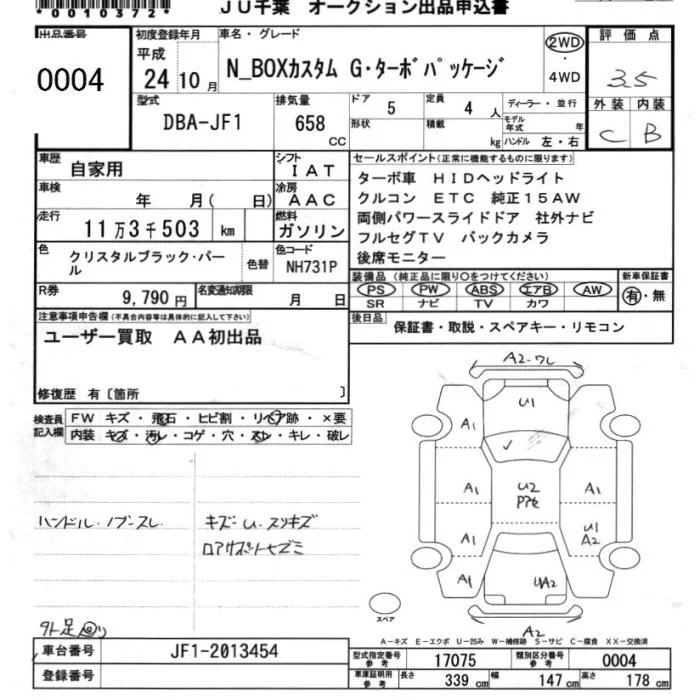 *0010372*
JU千葉 オークション出品申込書
出品番号
0004
初度登録年月
平成
24 10 月
車名・グレード
N_BOXカスタム G・ターボパッケージ
2WD
・
4WD
評価点
3.5
外装 内装
C B
型式
DBA-JF1
排気量
658
CC
ドア
5
定員
4 人
形状
積載
kg
ディーラー・並行
モデル
年式 年
ハンドル 左・右
車歴
自家用
シフト
IAT
車検
年 月( 日)
冷房
AAC
走行
11万3千503 km
燃料
ガソリン
色
クリスタルブラック・パー
ル
色替
色コード
NH731P
R券
9,790 円
名変通知期限
月 日
セールスポイント(正常に機能するものに限ります)
ターボ車 HIDヘッドライト
クルコン ETC 純正15AW
両側パワースライドドア 社外ナビ
フルセグTV バックカメラ
後席モニター
装備品 (純正品に限り○をつけてください)
PS PW ABS エアB AW
SR ナビ TV カワ
新車保証書
有・無
後日品
保証書・取説・スペアキー・リモコン
注意事項申告欄(不具合内容等は具体的に記入して下さい)
ユーザー買取 AA初出品
修復歴 有〔箇所 〕
検査員
記入欄
FW キズ・飛石・ヒビ割・リペア跡・×要
内装 キズ・汚レ・コゲ・穴・スレ・キレ・破レ
ハンドル・ノブ・スレ
キズ・U・スリキズ
外足回り
A2・ワレ
U1
A1
A1
A1
A1
U2
A1
U1
A2
A1
A1
UA2
A2
スペア
A-キズ E-エクボ U-凹み W-補修跡 S-サビ C-腐食 XX-交換済
車台番号
JF1-2013454
登録番号
型式指定番号
参考
17075
類別区分番号
参考
0004
車庫証明用
参考
長さ
339 cm
幅
147 cm
高さ
178 cm